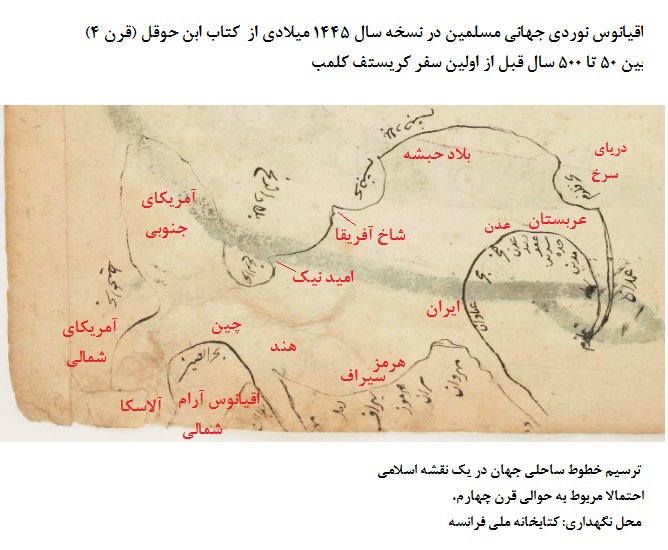 اقیانوس نوردی جهانی مسلمین در نسخه سال ۱۴۴۵ میلادی از کتاب ابن حوقل (قرن ۴)
بین ۵۰ تا ۵۰۰ سال قبل از اولین سفر کریستف کلمب
دریای
سرخ
بلاد حبشه
آمریکای
جنوبی
عربستان
عدن
شاخ آفریقا
امید نیک
ایران
چین
هند
آمریکای
شمالی
هرمز
سیراف
اقیانوس آرام
شمالی
آلاسکا
بحر الصین
عدن
جده
مهروبان
هرموز
سیراف
ترسیم خطوط ساحلی جهان در یک نقشه اسلامی
احتمالا مربوط به حوالی قرن چهارم،
محل نگهداری: کتابخانه ملی فرانسه